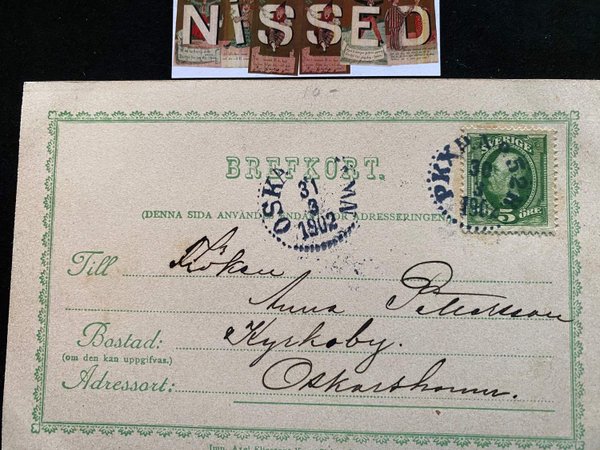 NISSED
10-
BREFKORT.
(DENNA SIDA ANVÄNDES ENDAST FÖR ADRESSERINGEN
SVERIGE
5 ÖRE
PKXP
30
3
1902
OSKA
31
3
1902
Till Fröken
Anna Peterson
Bostad: Kyrkoby.
(om den kan uppgifvas.)
Adressort: Oskarshamn.
Imp. Axel